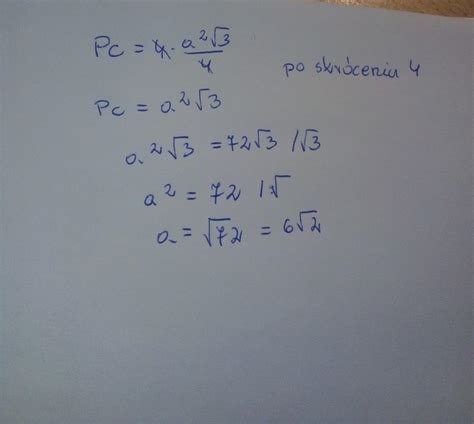 Pc = 4 · a²√3/4
po skróceniu 4
Pc = a²√3
a²√3 = 72√3 /√3
a² = 72 /√
a = √72 = 6√2